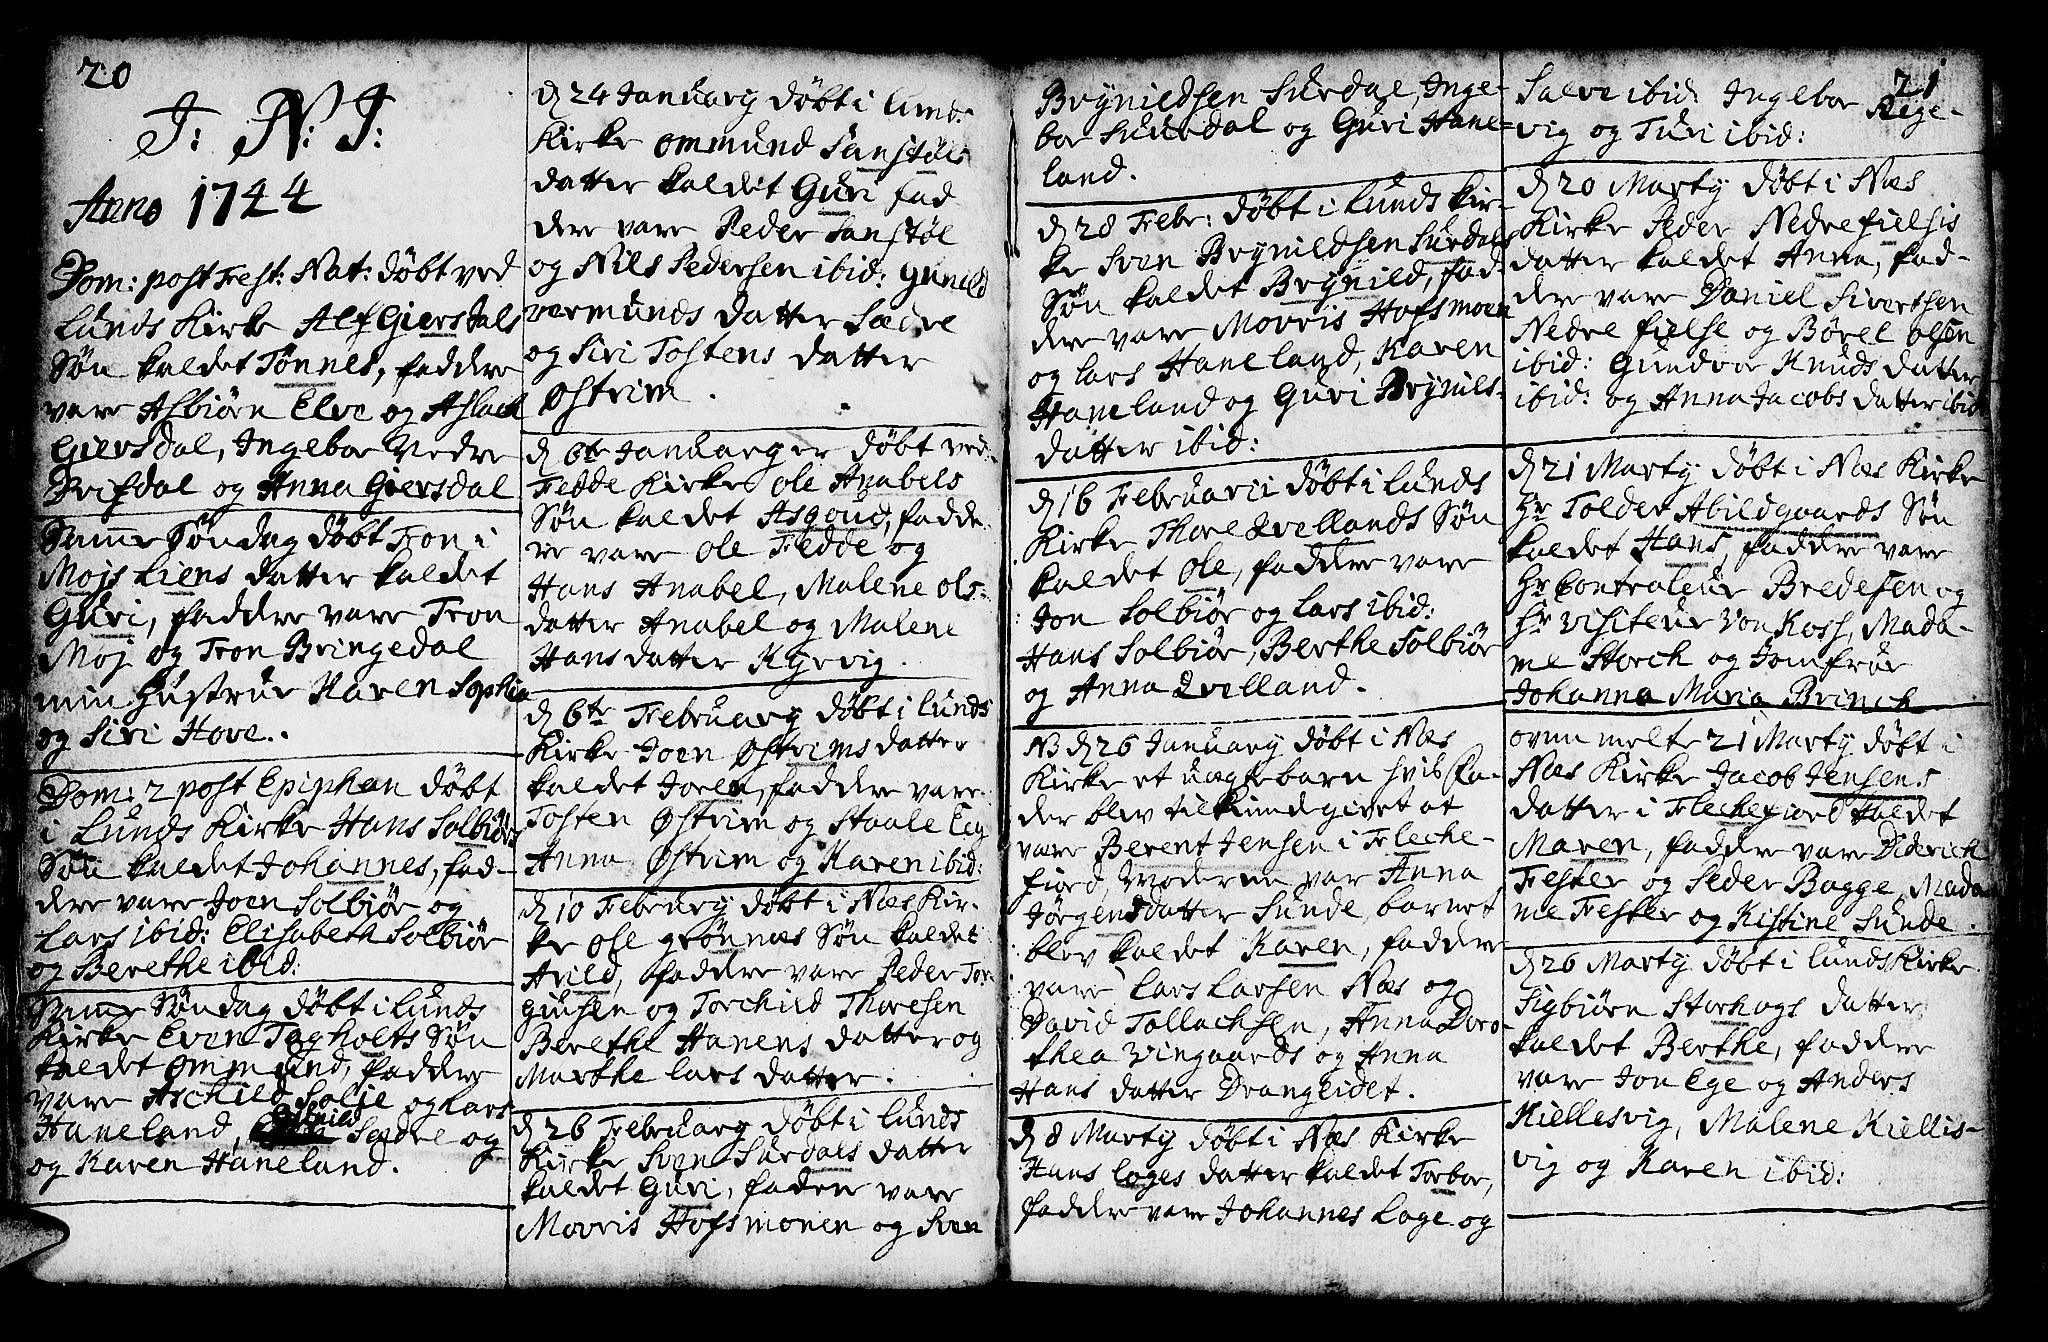 20
J: N: J:
Anno 1744
Dom: post Fest: Nat: døbt ved
Lunds Kirke Alf Giersdals
Søn kaldet Tønnes, faddre
vare Asbiørn Elve og Aslach
Giersdal, Ingebor Nedre
Drifdal og Anna Giersdal
Samme Søndag døbt Tron i
Mojs Liens datter kaldet
Guri, faddre vare Tron
Moj og Tron Bringedal
min Hustrue Karen Sophia
og Siri Hove.
Dom: 2 post Epiphan døbt
i Lunds Kirke Hans Solbiørs
Søn kaldet Johannes, fad-
dre vare Joen Solbiør og
Lars ibid: Elisabeth Solbiør
og Berethe ibid:
Samme Søndag døbt i Lunds
Kirke Even Tagholts Søn
kaldet Ommund, faddre
vare Aschild Solie og Lars
Haneland, Sædre og
og Karen Haneland.
d 24 January døbt i Lunds
Kirke Ommund Sanstøls
datter kaldet Guri fad
dre vare Peder Sanstøl
og Nils Pedersen ibid: Gunild
vermunds datter Sædre
og Siri Tostens datter
Østrim.
d 6te January er døbt ved
Fedde Kirke Ole Anabels
Søn kaldet Asgoud, fadde-
re vare Ole Fedde og
Hans Anabel, Malene Ols-
datter Anabel og Malene
Hansdatter Kyrvig.
d 6te February døbt i Lunds
Kirke Joen Østrims datter
kaldet Joren, faddre vare
Tosten Østrim og Staale Eeg
Anna Østrim og Karen ibid:
d 10 February døbt i Næs Kir-
ke Ole Grønnæs Søn kaldet
Avild, faddre vare Peder Tor
giusen og Torchild Thoresen
Berethe Hanens datter og
Marthe Lars datter.
d 26 February døbt i Lunds
Kirke Sven Surdals datter
kaldet Guri, fadere vare
Morris Hofsmonen og Sven
Brynildsen Surdal, Inge-
bor Suurdal og Guri Hane-
land.
d 28 Febr: døbt i Lunds Kir-
ke Sven Brynildsen Surdals
Søn kaldet Brynild, fad-
dre vare Morris Hofsmoen
og Lars Haneland, Karen
Haneland og Guri Brynils-
datter ibid:
d 16 Februarii døbt i Lunds
Kirke Thore Qvellands Søn
kaldet Ole, faddre vare
Jon Solbiør og Lars ibid:
Hans Solbiør, Berthe Solbiør
og Anna Qvelland.
NB d 26 January døbt i Næs
Kirke et uægte barn hvis fa-
der blev tilkiendgivet at
være Berent Jensen i Fleche-
fiord, Moderen var Anna
Jørgensdatter Sunde, barnet
blev kaldet Karen, faddre
vare Lars Larsen Næs og
David Tollachsen, Anna Doro
thea Vingaards og Anna
Hans datter Drangeidet.
d 8 Marty døbt i Næs Kirke
Hans Loges datter kaldet Torbor,
faddre vare Johannes Loge og
21
Salve ibid: Ingebor Rege-
vig og Turi ibid:
d 20 Marty døbt i Næs
Kirke Peder Nedrefielsis
datter kaldet Anna, fad-
dre vare Daniel Sivertsen
Nedre fielse og Børel Olsen
ibid: Gundvor Knuds datter
ibid: og Anna Jacobs datter ibid
d 21 Marty døbt i Næs Kirke
Hr Tolder Abildgaards Søn
kaldet Hans, faddre vare
Hr Controleur Bredesen og
Hr Visiteur Von Koss, Mada-
me Storch og Jomfrue
Johanna Maria Brinch
oven melte 21 Marty døbt i
Næs Kirke Jacob Jensens
datter i Flechefiord kaldet
Maren, faddre vare Diderich
Fester og Peder Bagge, Mada
me Fester og Kistine Sunde.
d 26 Marty døbt i Lunds Kirke
Sigbiørn Storhogs datter
kaldet Berthe, faddre
vare Jon Ege og Anders
Kiellesvig, Malene Kielles-
vig og Karen ibid: